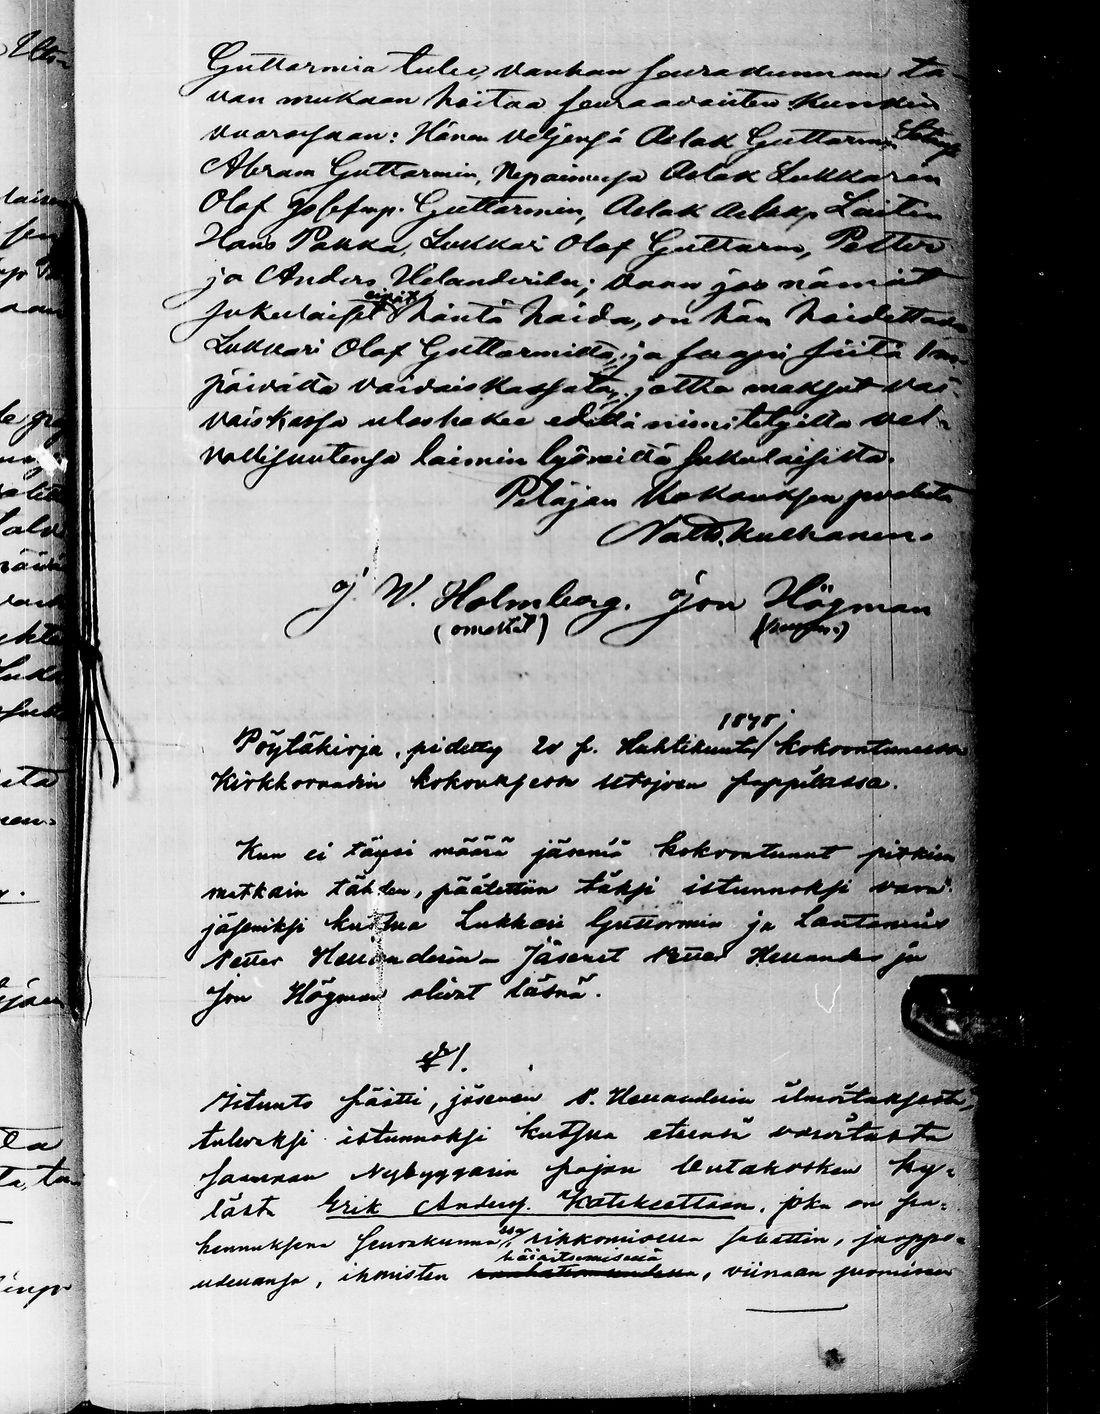 Guttormia tulee, vanhan seurakunnan ta-
van mukaan hoitaa seuraavaisten kunkin
vuorossaan: Hänen veljensä Aslak Guttormin,
Abram Guttormin, Aslak Lukkaren
Olof Josefinp. Guttormin, Aslak Aslakp Laitin
Hans Pakka, Lukkari Olof Guttorm, Petter
ja Anders Helanderilen; vaan jos nämät
sukulaiset eivät häntä hoida, on hän hoidettava
Lukkari Olof Guttormilta, ja saapi siitä 1 m.
päivältä vaivaiskassata, jotta maksut vai-
vaiskassa uloshakee edellä nimitetyiltä vel-
vollisuutensa laimin lyöneiltä sukulaisilta.
Pitäjän kokouksen puolesta
J. W. Holmberg. Jon Högman
(omasta)
1878
Pöytäkirja, pidetty 20 p. Huhtikuuta kokoontuneessa
Kirkkoraadin kokouksessa Utsjoen pappilassa.
Kun ei täysi määrä jäseniä kokoontunut pitkien
matkain tähden, päätettiin täksi istunnoksi vara-
jäseniksi kutsua Lukkari Guttormin ja Lautamies
Petter Helanderin. Jäsenet Petter Helander ja
Jon Högman olivat läsnä.
§ 1.
Istunto päätti, jäsenen P. Helanderin ilmoituksesta,
tulevaksi istunnoksi kutsua eteensä varoitusta
saamaan Nybyggarin pojan Outakosken ky-
lästä Erik Anders. Kateksettaan, joka on pa-
hennuksena seurakunnassa rikkomisessa sabattin, juoppo-
udessansa, ihmisten häiritsemisessä, viinan juomisessa